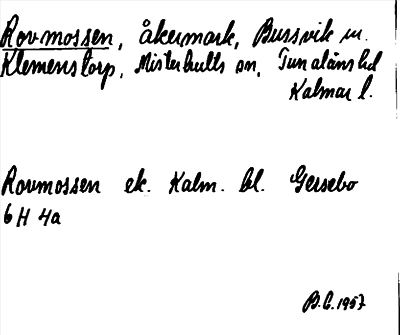 Rovmossen, åkermark, Bussvik m.
Klemenstorp, Misterhults sn, Tunaläns hd
Kalmar l.
Rovmossen ek. Kalm. bl. Gersebo
6 H 4a
B.C. 1957